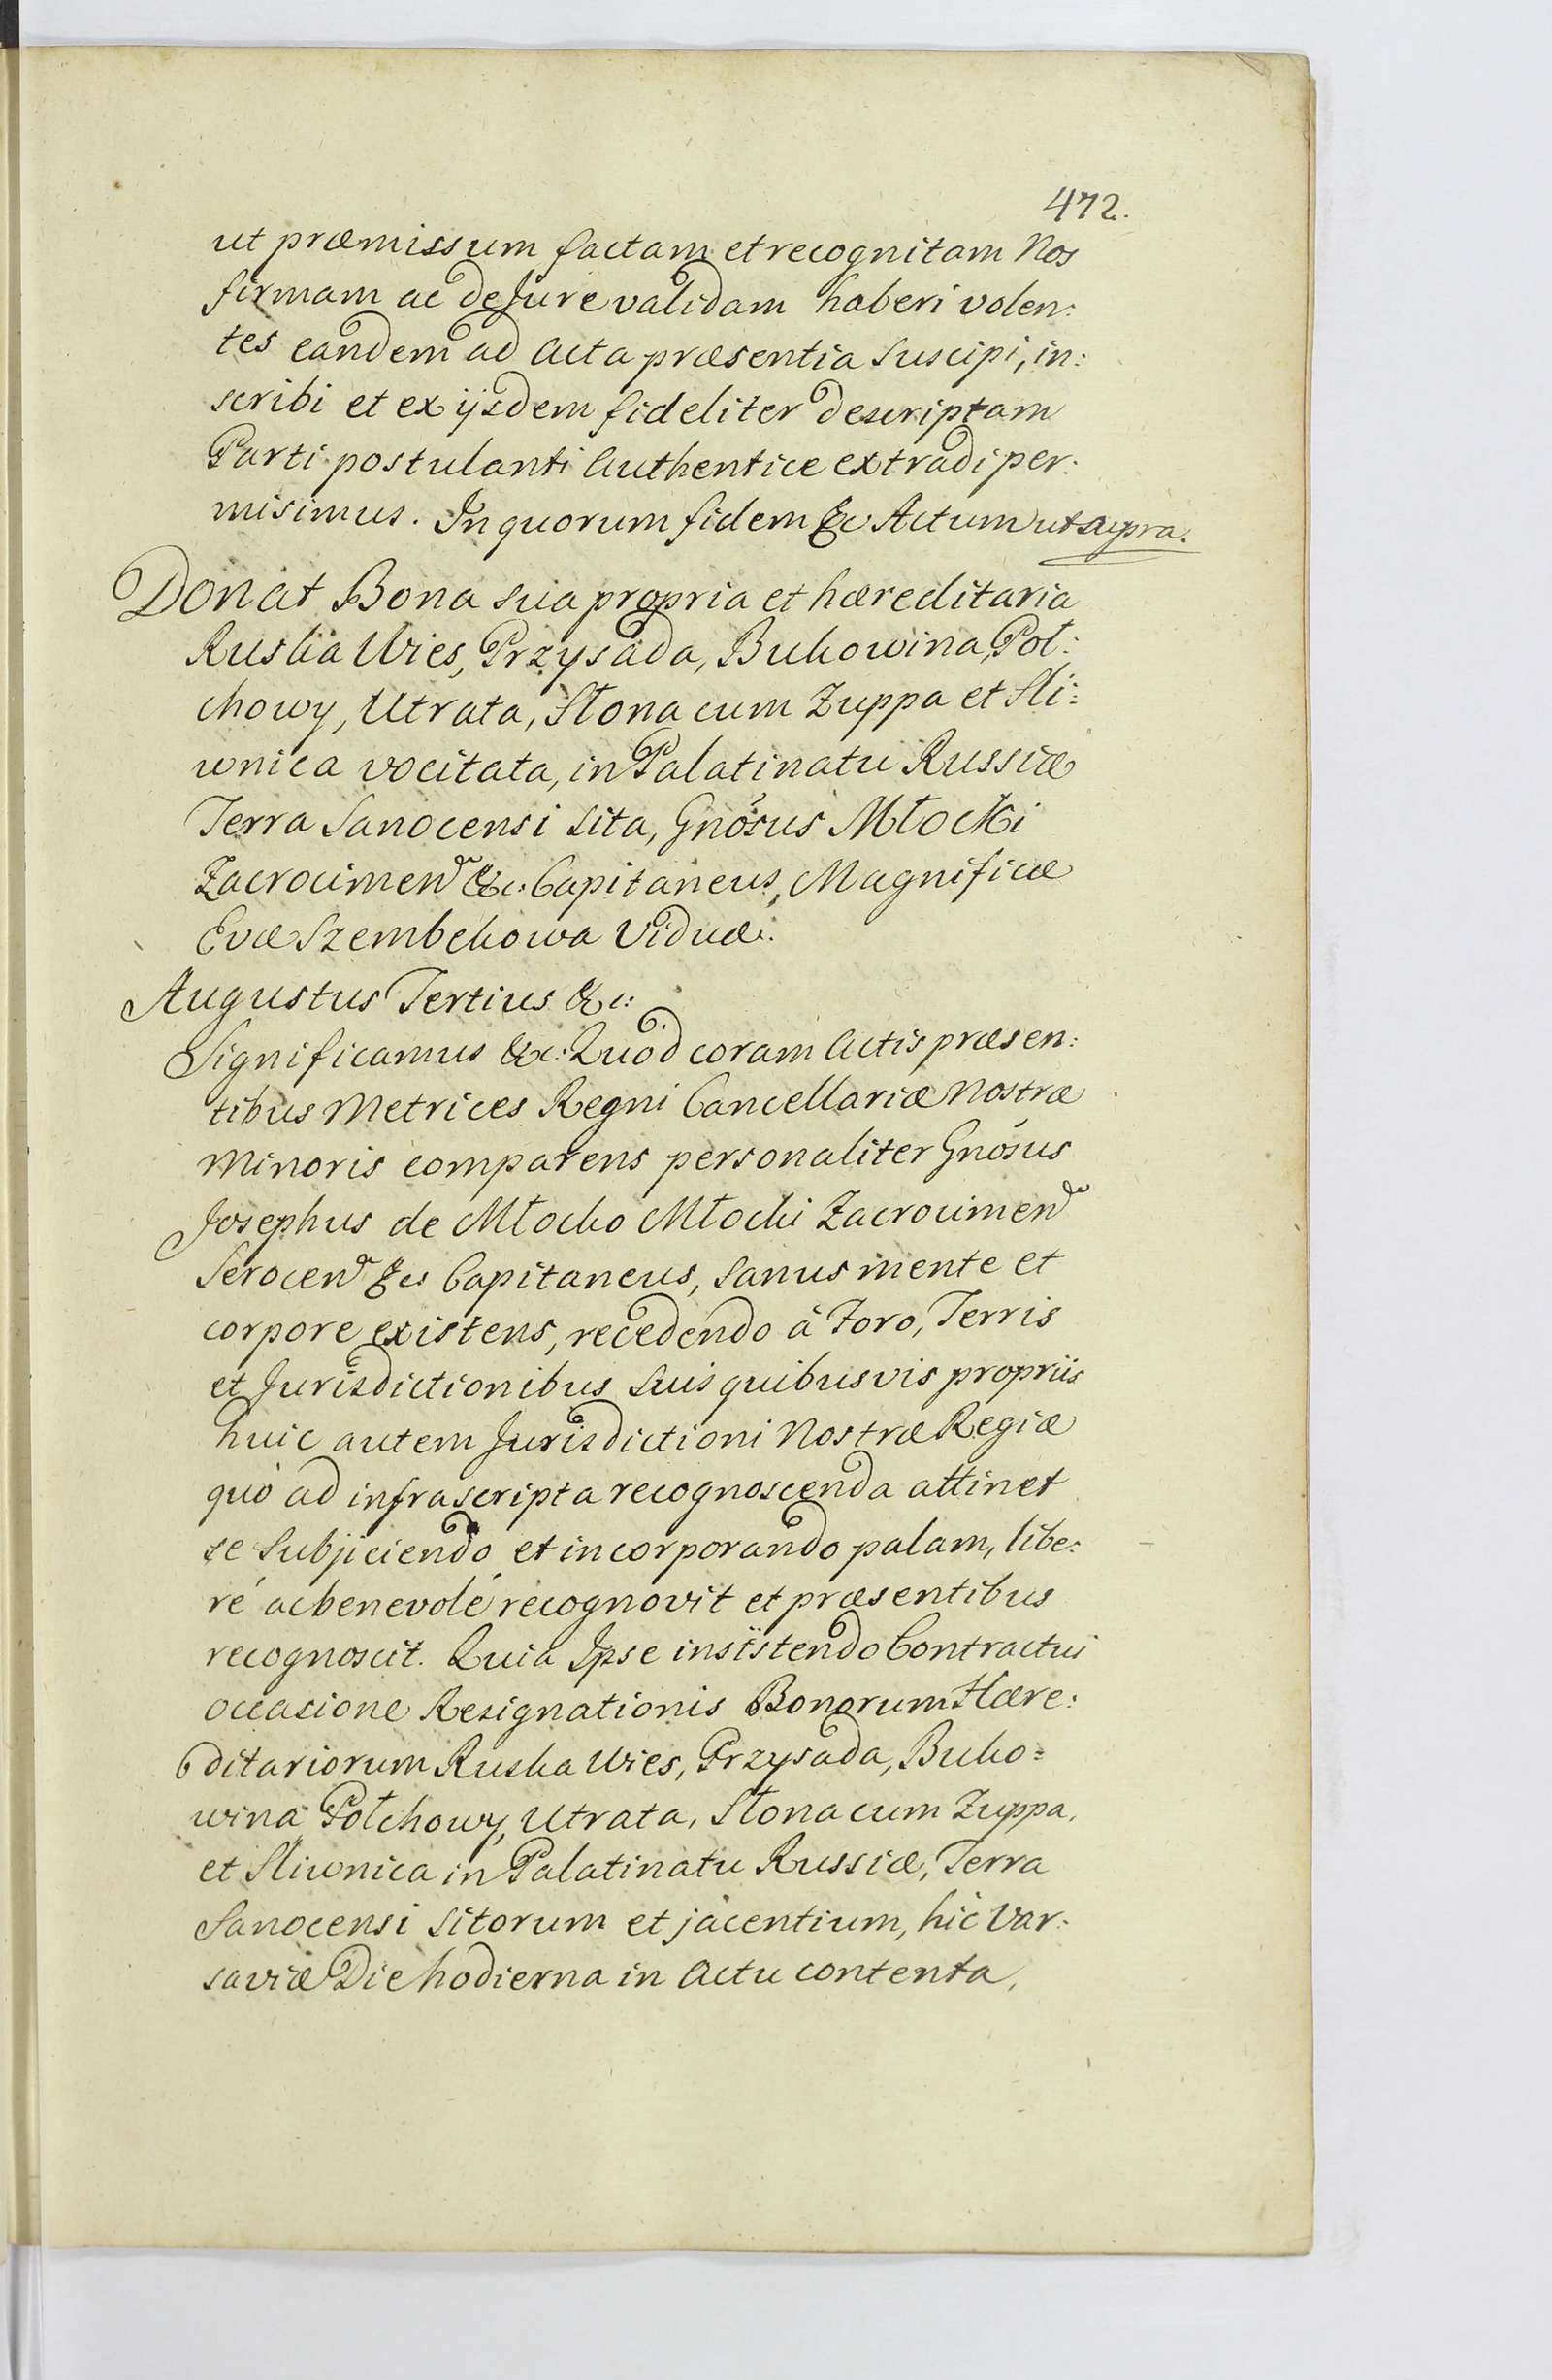 472.
ut præmissum factam et recognitam Nos
firmam ac de Jure validam haberi volen:
tes eandem ad Acta præsentia suscipi, in:
scribi et ex ijsdem fideliter descriptam
Parti postulanti Authentice extradi per:
misimus. In quorum fidem &c Actum ut supra.
Donat Bona sua propria et hæreditaria
Ruska Wies, Przysada, Bukowina, Poł:
chowy, Utrata, Słona cum Zuppa et Sli:
wnica vocitata, in Palatinatu Russiæ
Terra Sanocensi sita, Gnosus Młocki
Zacrocimen &c: Capitaneus, Magnificæ
Evæ Szembekowa Viduæ.
Augustus Tertius &c:
Significamus &c: Quod coram Actis præsen:
tibus Metrices Regni Cancellariæ Nostræ
Minoris comparens personaliter Gnosus
Josephus de Młocko Młocki Zacrocimen
Serocen &c Capitaneus, sanus mente et
corpore existens, recedendo à Foro, Terris
et Jurisdictionibus suis quibusvis propriis
huic autem Jurisdictioni Nostræ Regiæ
quò ad infrascripta recognoscenda attinet
se subjiciendo et incorporando palam, libe:
ré ac benevolé recognovit et præsentibus
recognoscit. Quia Ipse insistendo Contractui
occasione Resignationis Bonorum Hære:
ditariorum Ruska Wies, Przysada, Buko:
wina Połchowy, Utrata, Słona cum Zuppa,
et Sliwnica in Palatinatu Russiæ, Terra
Sanocensi sitorum et jacentium, hic Var:
saviæ Die hodierna in Actu contenta,